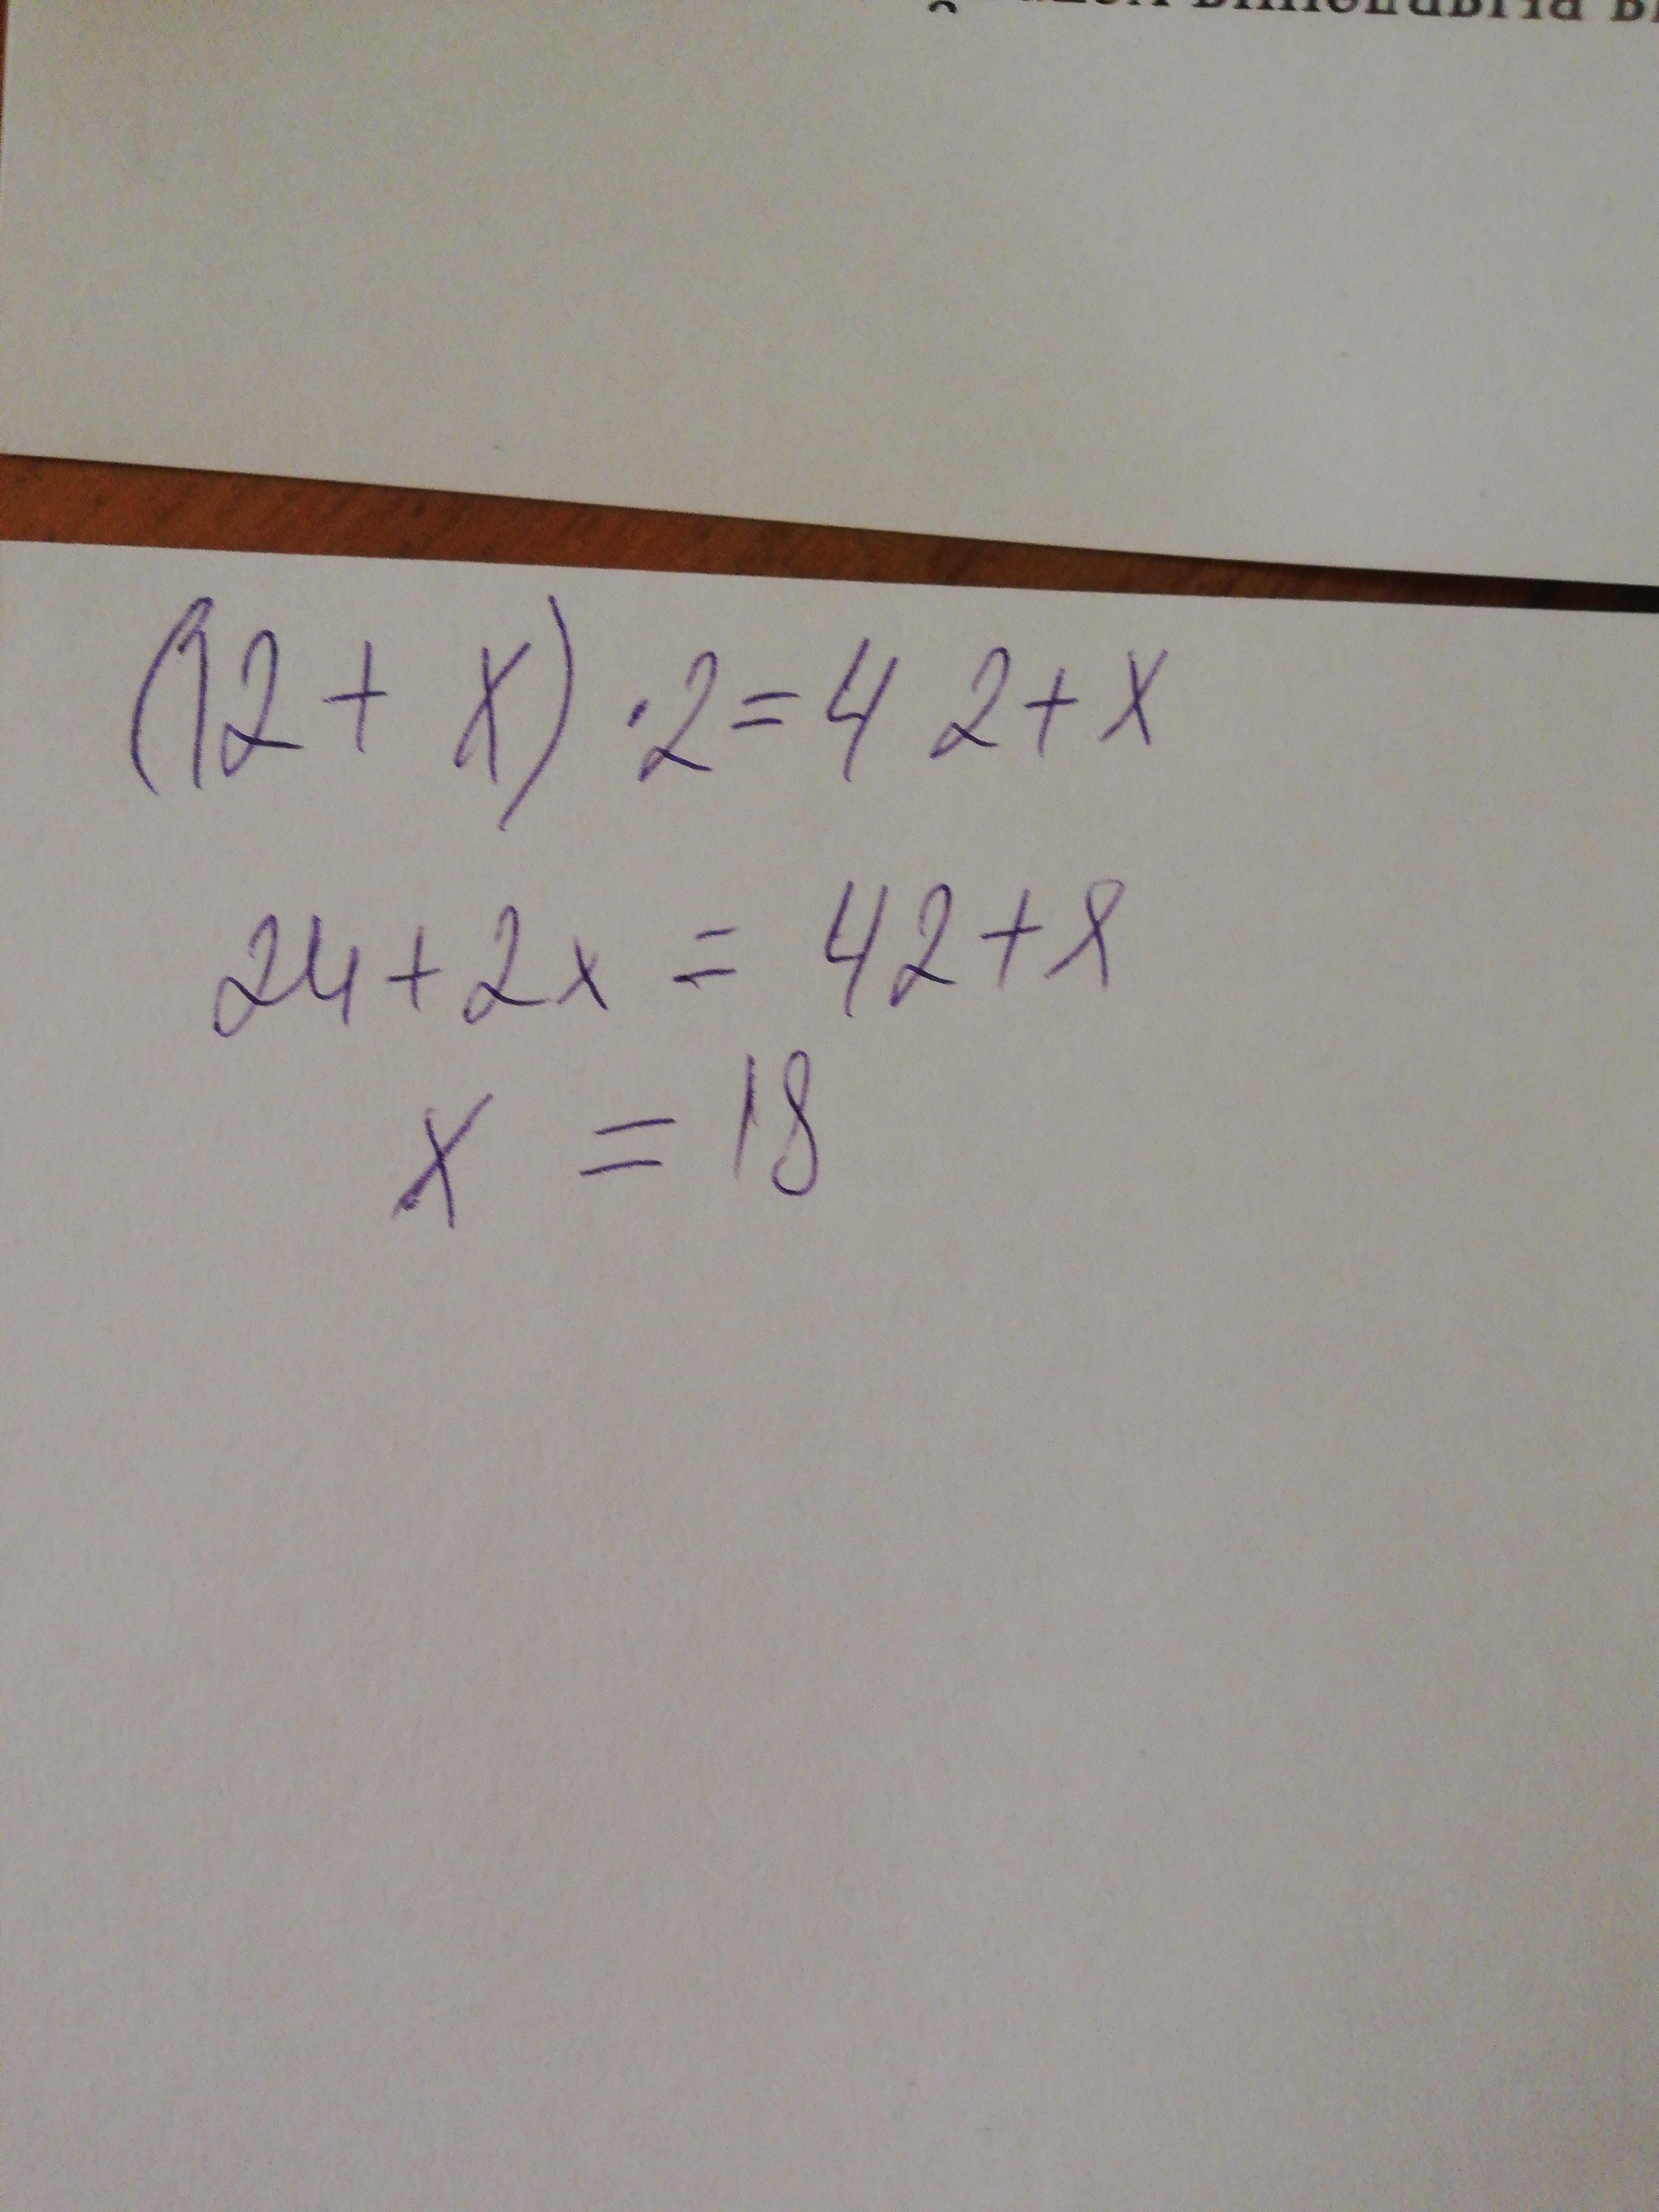 (12 + x) · 2 = 42 + x
24 + 2x = 42 + x
x = 18